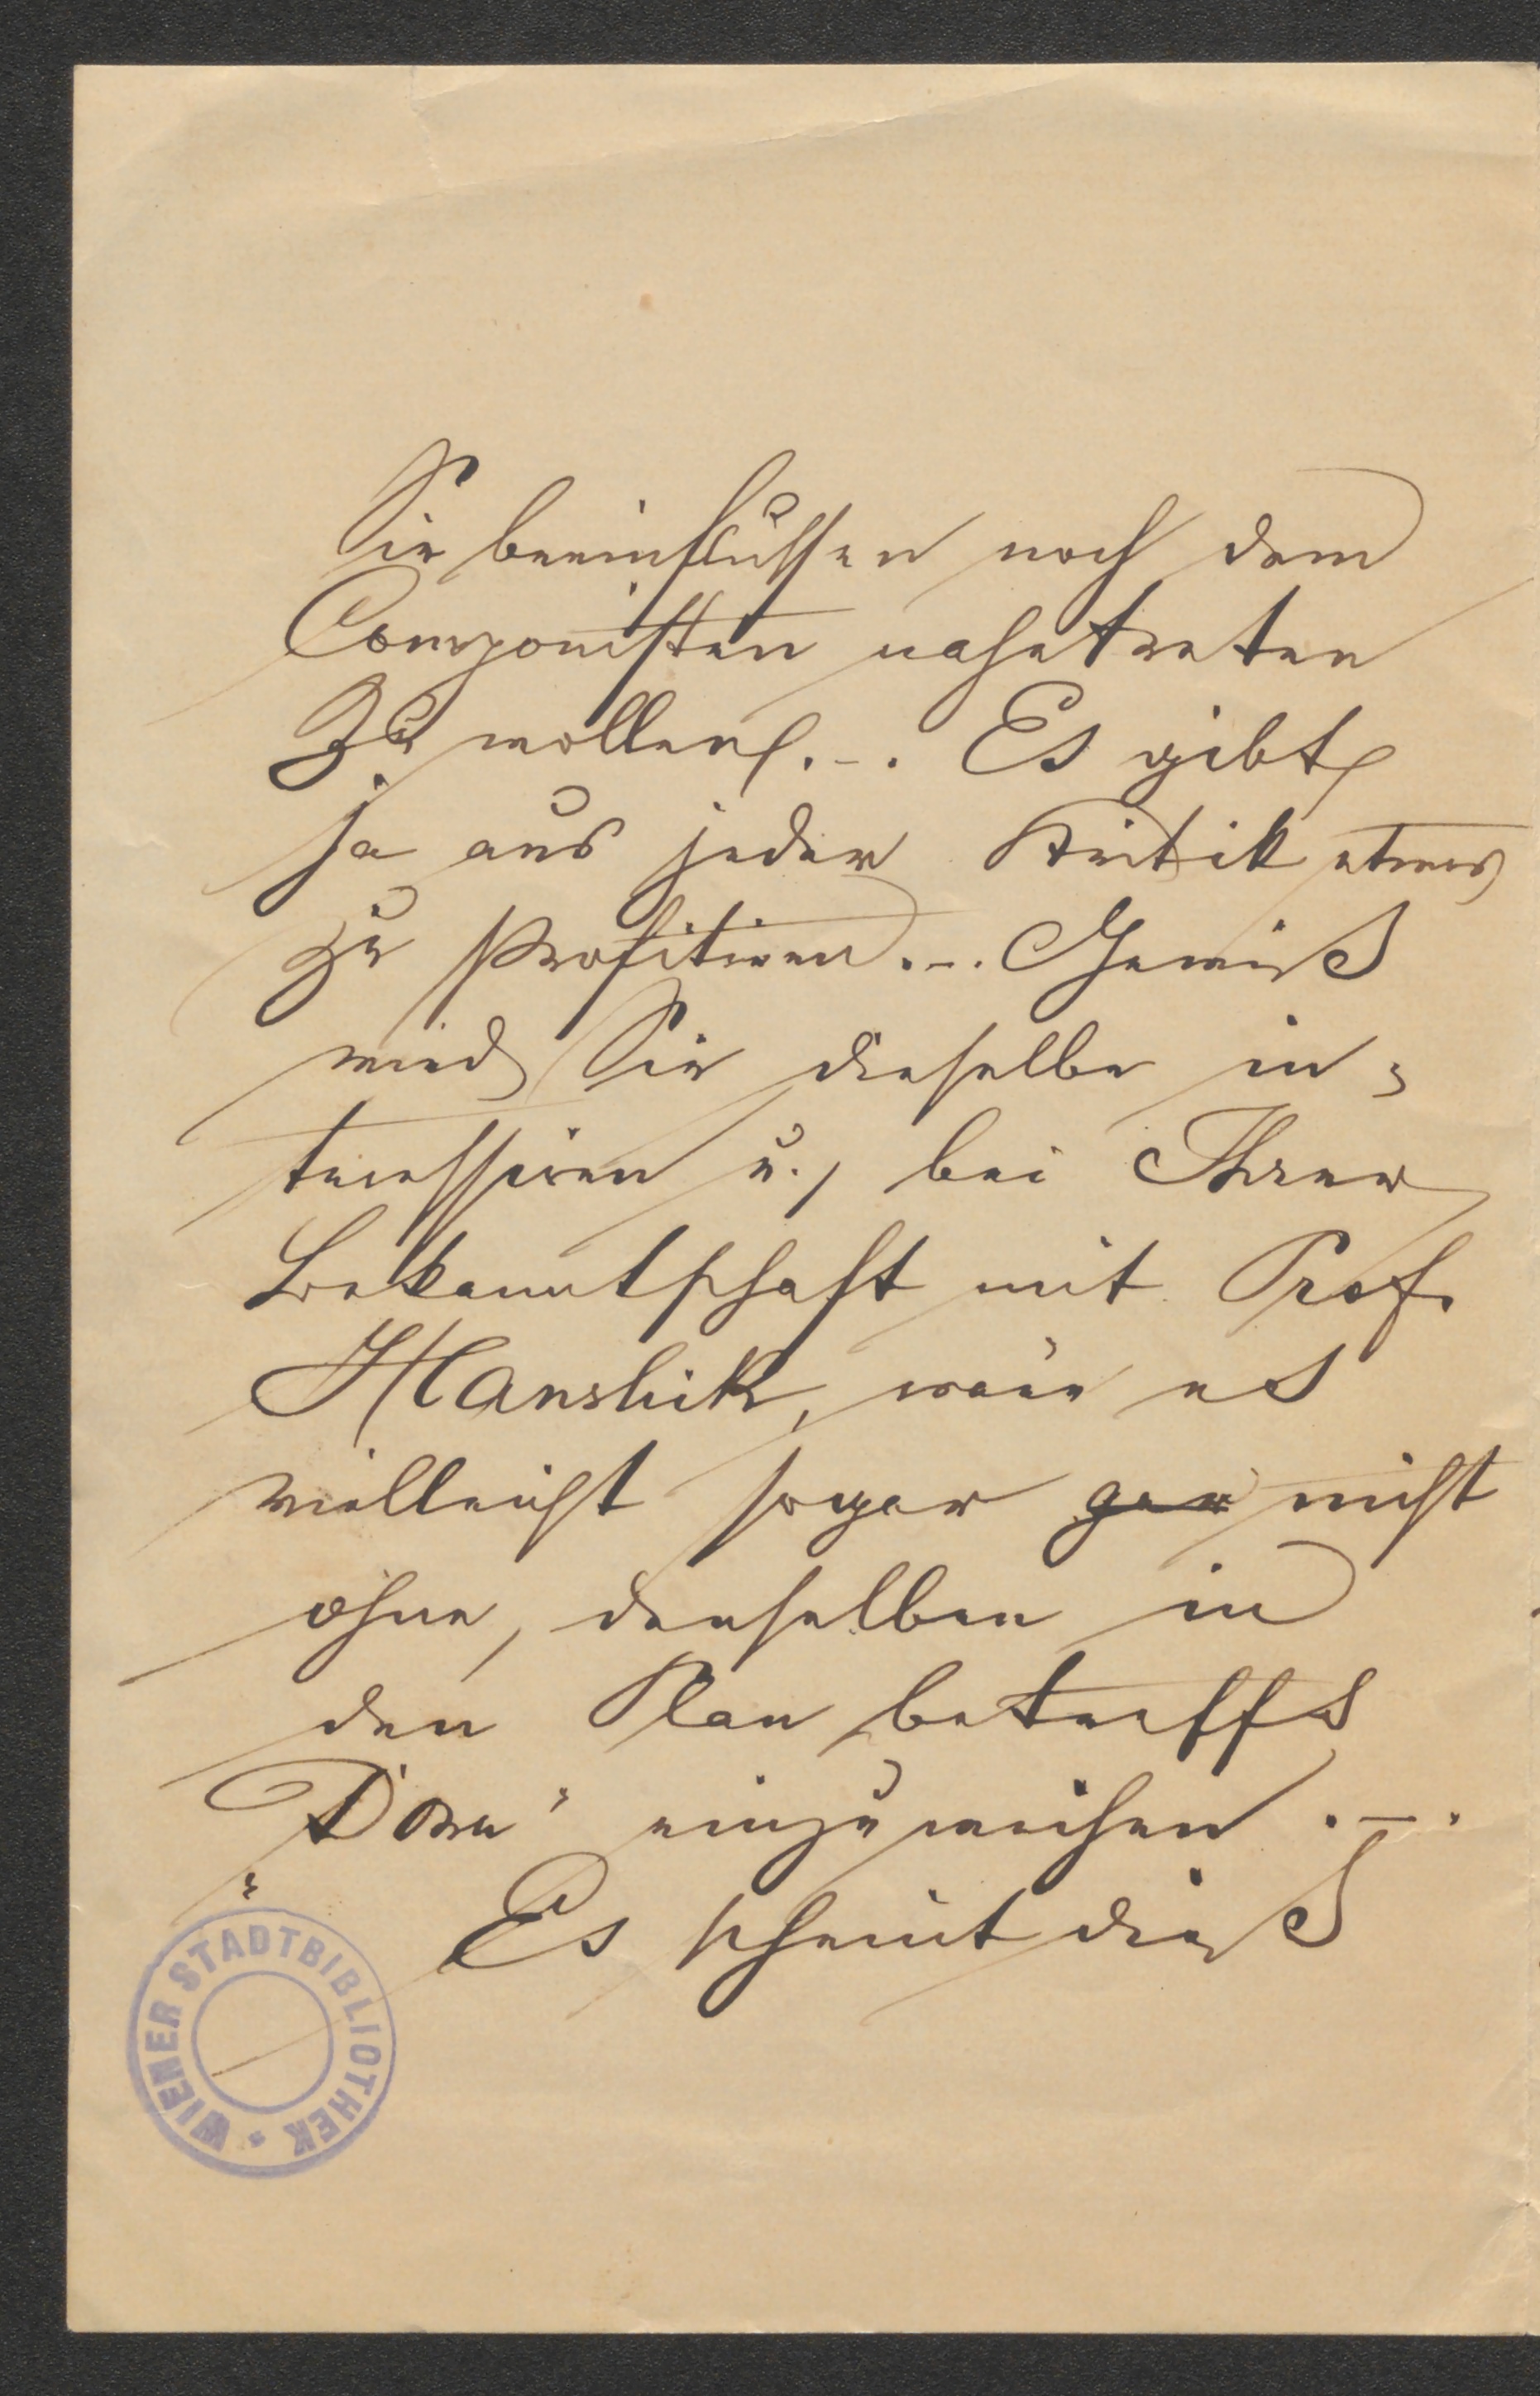 Sie beeinflussen noch dem
Componisten nahetreten
zu wollen. – . Es gibt
ja aus jeder Kritik etwas
zu profitiren. – . Gewiß
wird Sie dieselbe in-
teressiren u., bei Ihrer
Bekanntschaft mit Prof.
Hanslik, wäre es
vielleicht sogar gar nicht
ohne, denselben in
den Plan betreffs
„Dora“ einzuweihen. – .
Es scheint dieß
WIENER STADTBIBLIOTHEK